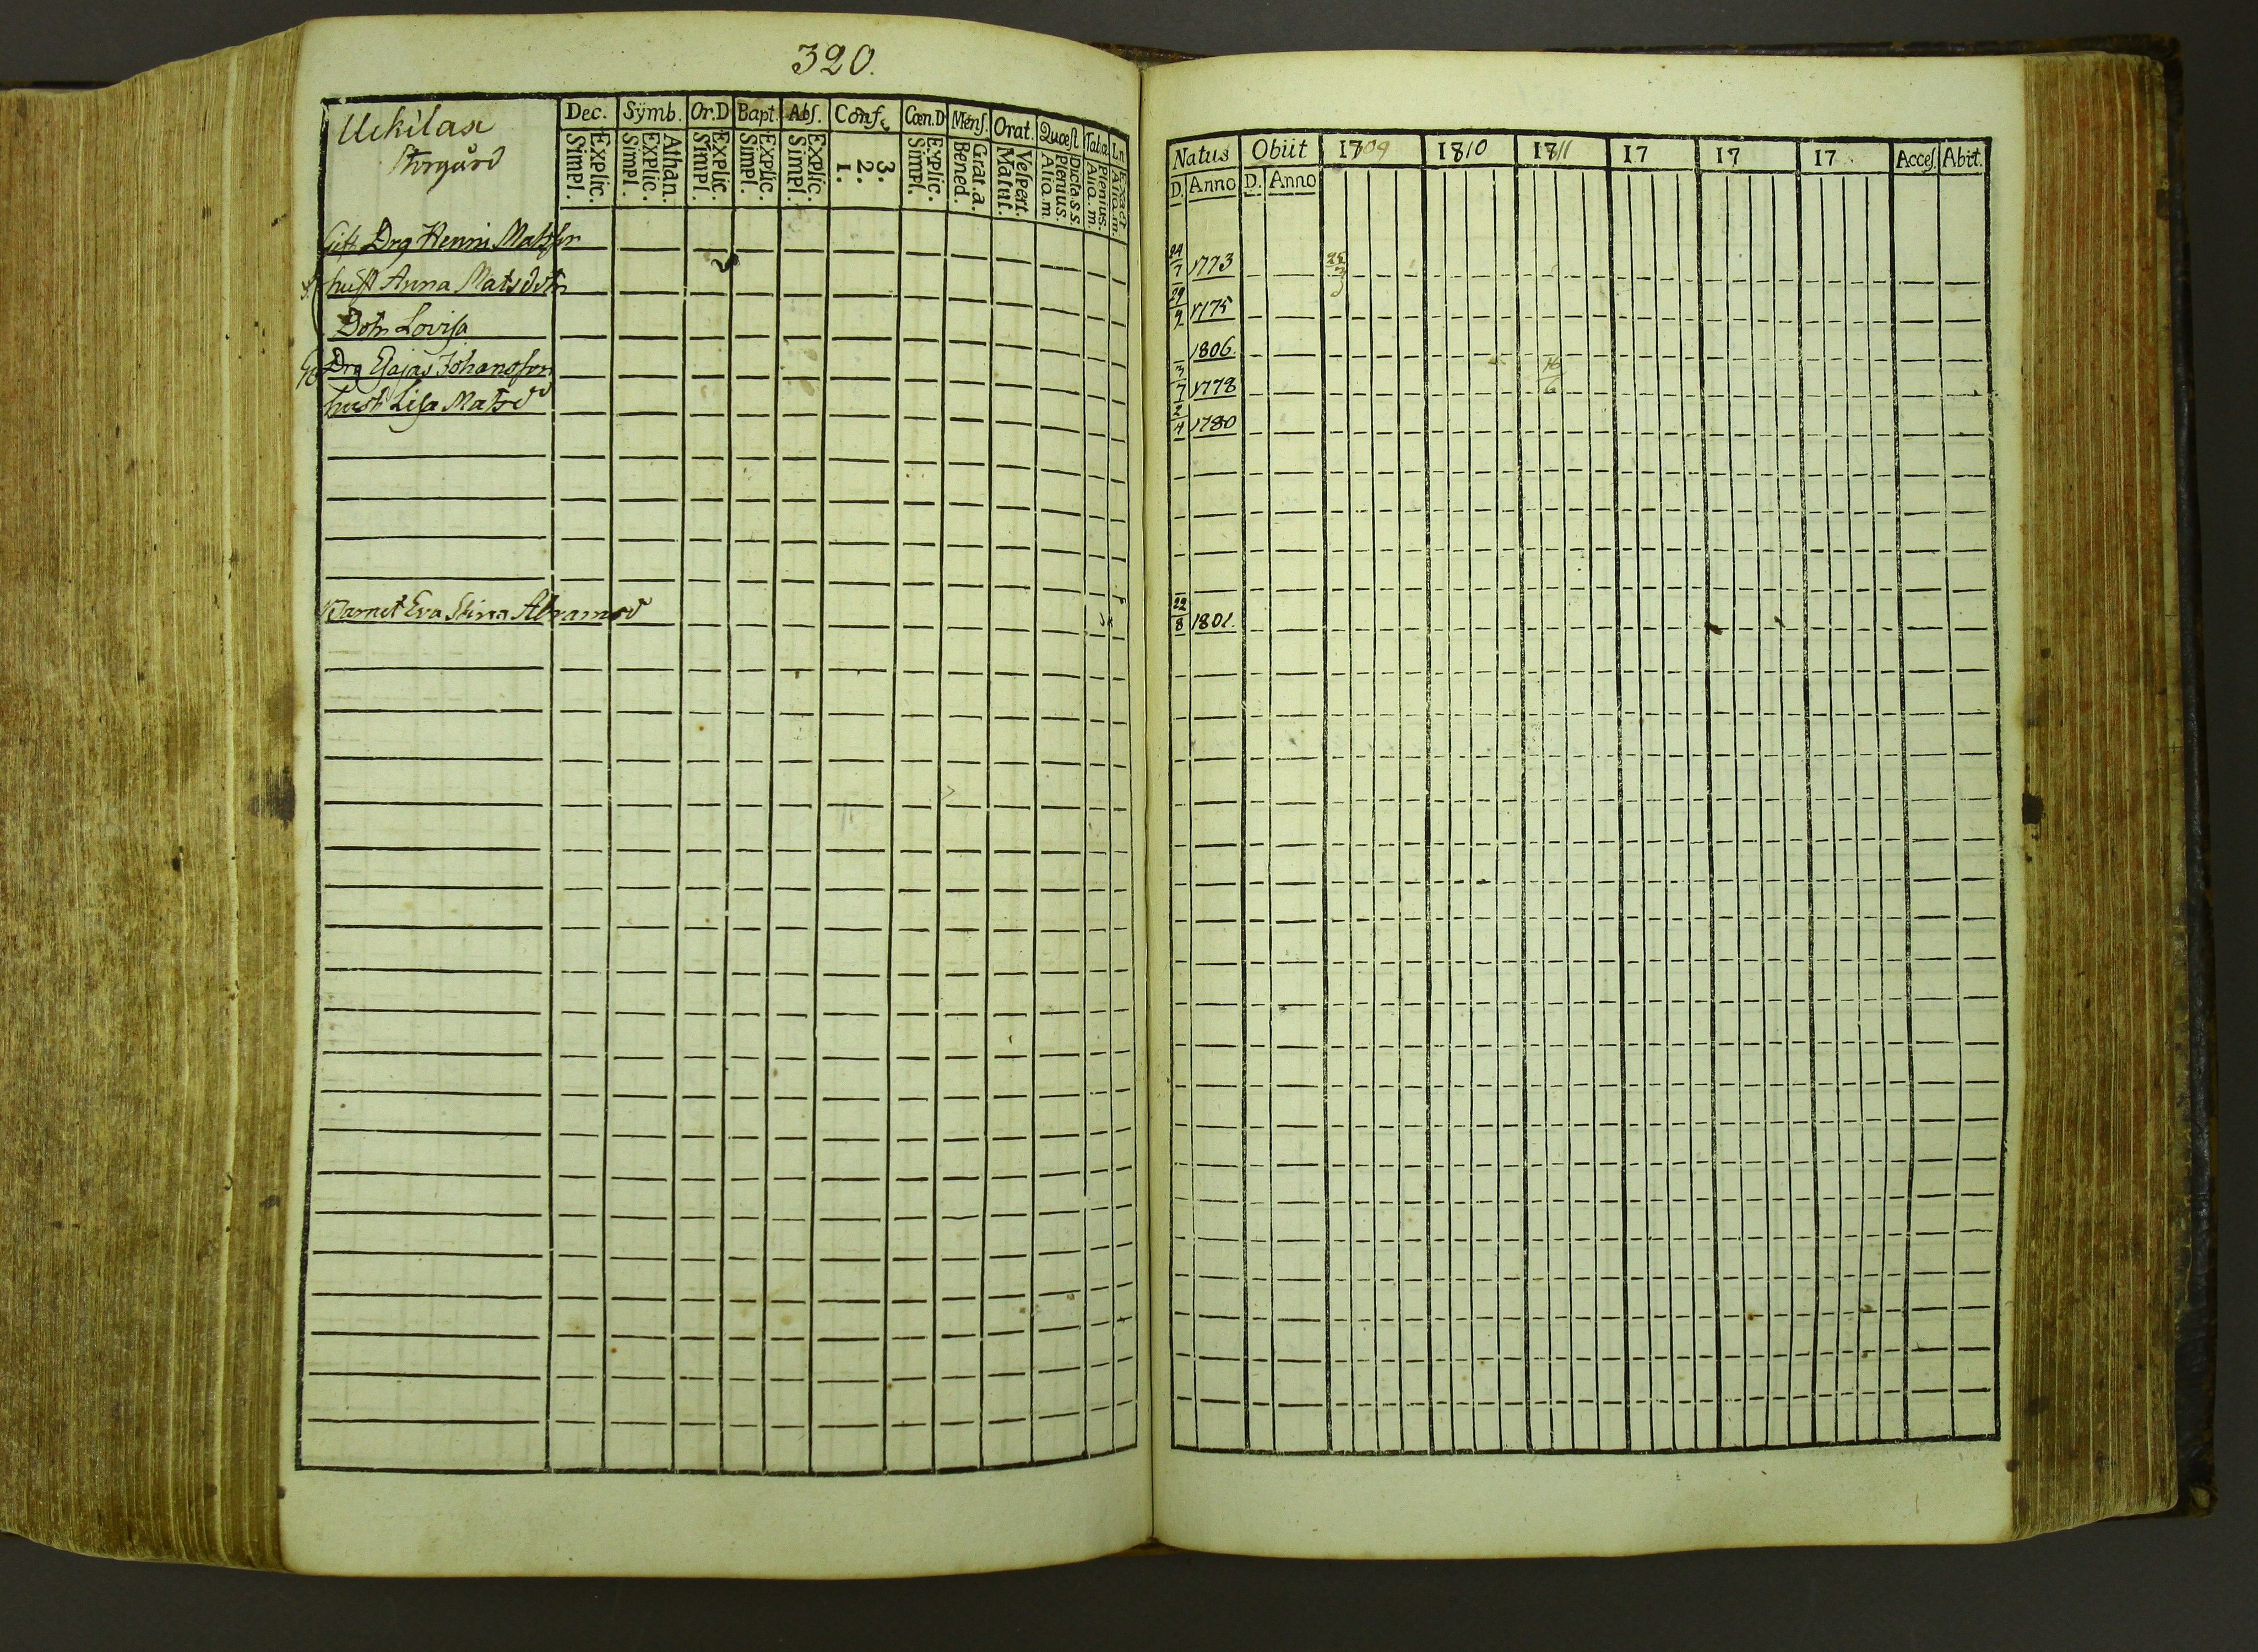 320.
Uckilax
Storgård
Dec. Symb. Or.D Bapt. Abs. Conf. Cæn.D Mens. Orat. Quæst Tab.æ Ln
Explic. Simpl. Athan. Explic. Simpl. Explic. Simpl. Explic. Simpl. Explic. Simpl. 3. 2. 1. Explic. Simpl. Grat.a. Bened. Vespert. Matut. Dicta.s.s. Plenius. Alio.m. Plenius. Alio.m. Exact Alio.m.
Natus Obiit 1809 1810 1811 17 17 17 Acces. Abit.
D. Anno D. Anno
Gift Drg Henric Matsson 24/7 1773 25/3
hust Anna Matsdotr 29/9 1775
Dotr Lovisa 1806.
Drg Esajas Johansson 3/7 1778 16/6
hustr Lisa Matsd 2/4 1780
Barnet Eva Stina Abramsd 22/8 1801.